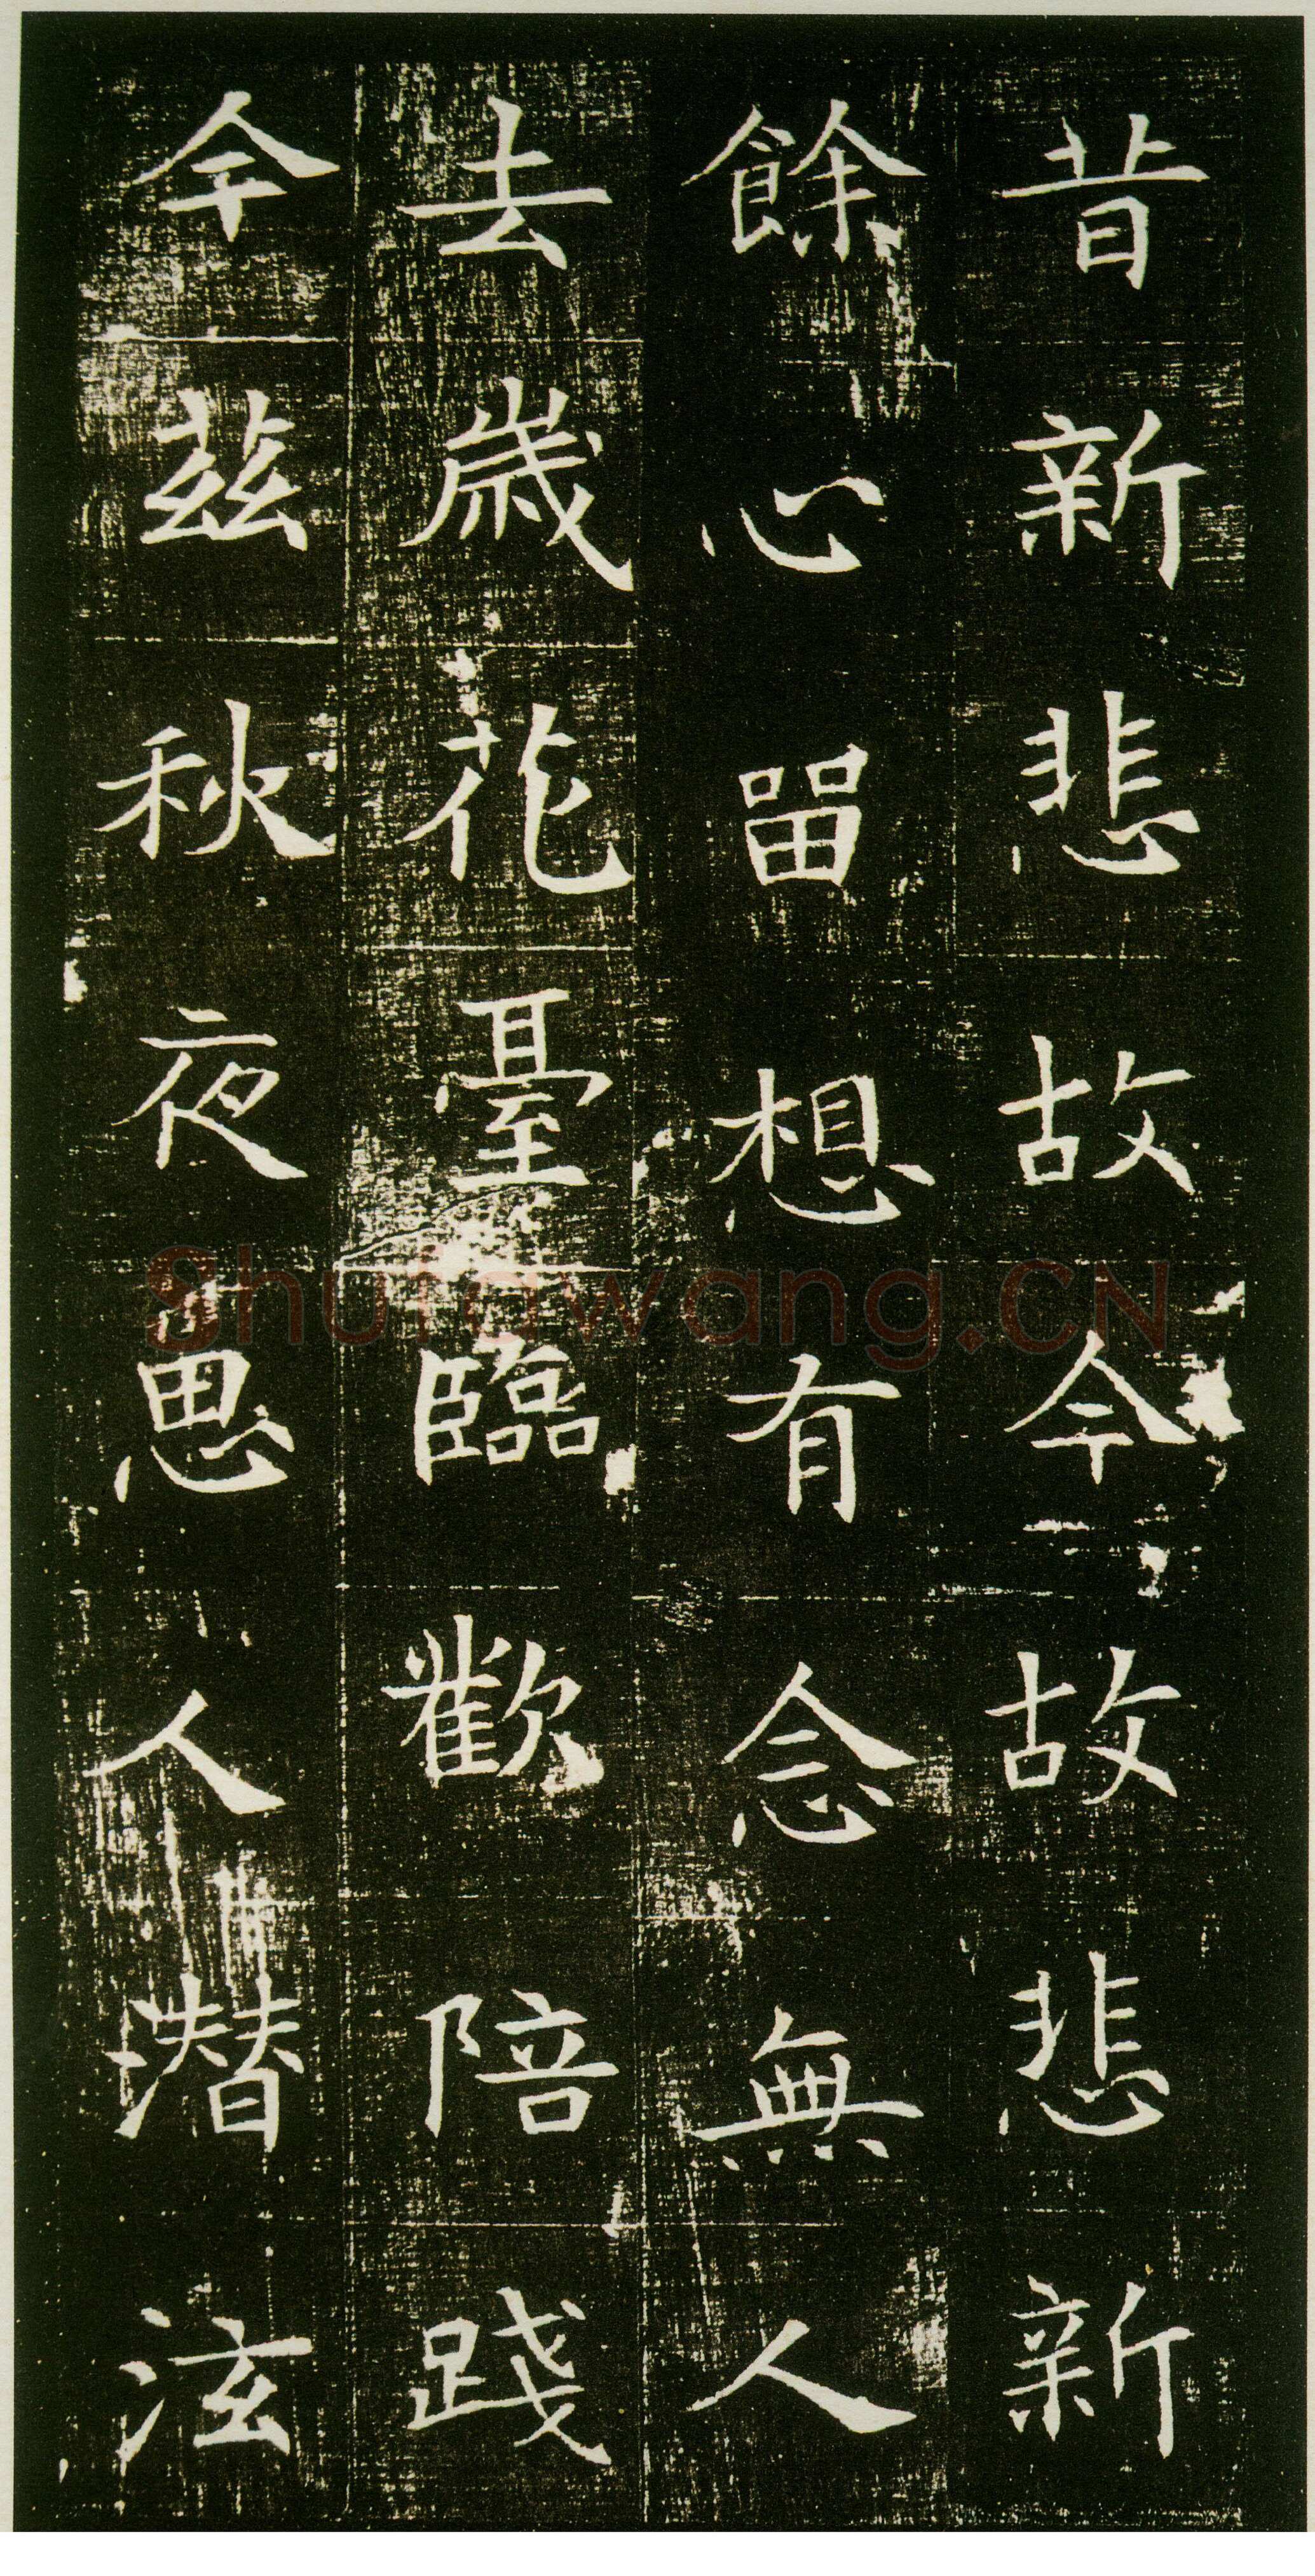 昔新悲故今故悲新
餘心留想有念無人
去歲花臺臨歡陪踐
今茲秋夜思人潛泫
Shufawang.CN